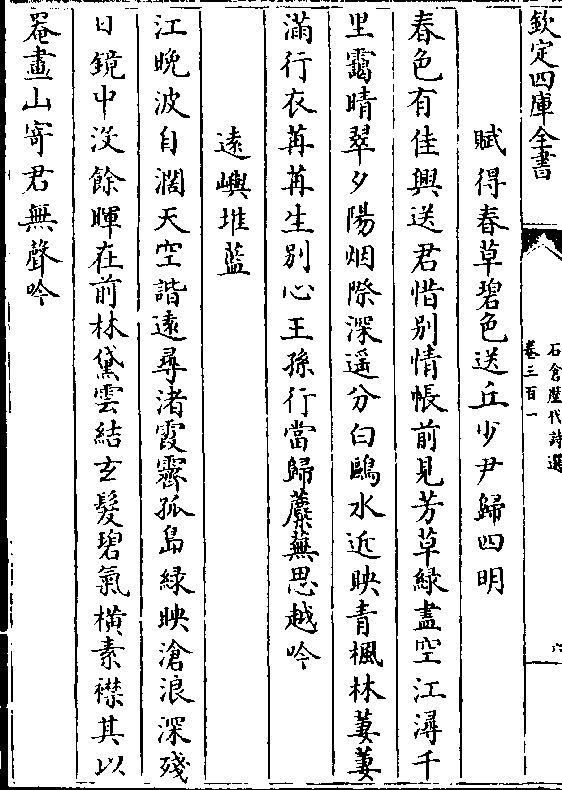 欽定四庫全書
石倉歷代詩選
卷三百一
六
賦得春草碧色送丘少尹歸四明
春色有佳興送君惜別情帳前見芳草綠盡空江潯千
里靄晴翠夕陽烟際深遥分白鷗水近映青楓林萋萋
滿行衣苒苒生別心王孫行當歸蘼蕪思越吟
遠嶼堆藍
江晚波自濶天空諧遠尋渚霞霽孤島綠映滄浪深殘
日鏡中沒餘暉在前林黛雲結玄髮碧氣橫素襟其以
罨畫山寄君無聲吟